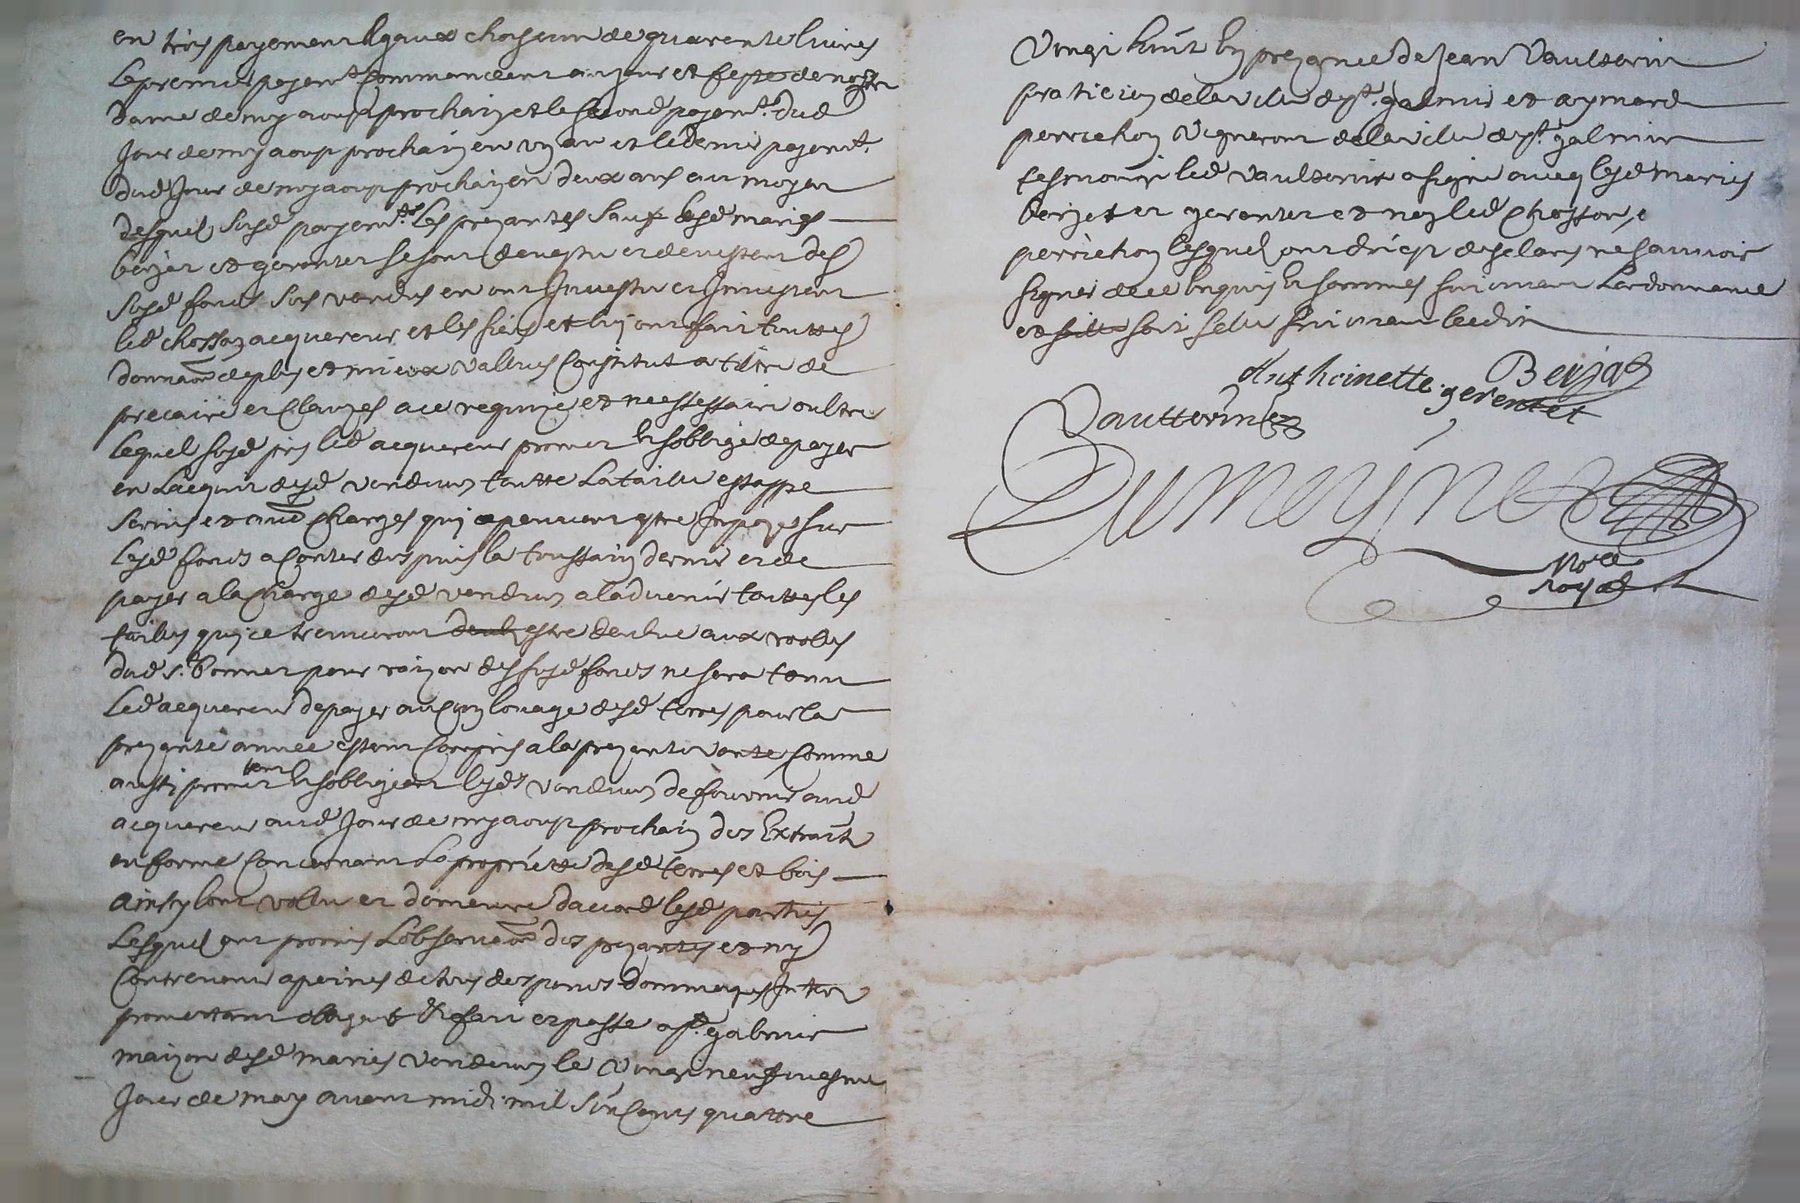 en trois payement esgaux chascun de quarente livres
le premier payemt commancent au jour et feste de nostre
dame de my aoust prochain et le second payemt. dud
Jour de my aoust prochain en un an et le dernier payemt.
dud Jour de my aoust prochain en deux ans au moyen
desquels susd payemts les prezantes sauf lesd maries
berjat et gerentet se sont devestu et devestent des
susd fonds sus vandus en ont Investu et Investent
led chossaz acquereur et les siens et luy ont fait touttes
donnaon de plus et mieux vallues Constitut a tiltre de
precaire et Clauzes a ce requize et necessessaire oultre
lequel susd pris led acquereur promet et soblige de payer
en lacquit desd vandeurs toutte la taille estappe
servis et aud charges quy peuvent estre Impozes sur
lesd fonds a Conter despuis la toussain dernier et de
payer a la charge desd vandeurs a ladvenir touttes les
tailles quy ce treuveront estre deubue aux rooles
dud st. bonnet pour raizon des susd fonds ne sera tenu
led acquereur de payer aulcun louage desd terres pour la
prezante annee estant Compris a la prezante vante Comme
aussy promettent et sobligent lesds vandeurs de fournir aud
acquereur aud Jour de my aoust prochain des Extrait
en forme Concernant la propriette desd terres et bois
ainsy lont vollu et demeure daccord lesd parties
lesquel ont promis lobservaon des prezantes et ny
Contrevenir a peines de tous despens dommages Interests
promettant obligent et fait et passe a st. galmier
maizon desd maries vandeurs le vingt neufviesme
Jour de may avant midi mil six Cents quattre
vingt huit En prezance de Jean Vaultorin
praticien de la ville de st. galmier et aymard
perrichon vigneront de la ville de st. galmier
tesmoingt led vaultorin a signe avecq lesd maries
berjat et gerentet et non led chosson, e
perrichon lesquel ont dict desclares ne scavoir
signer de ce enquis et sommes suivant Lordonnance
et soit selle suivant leedit
Anthoinette gerentet Berjat
Vaultorin
Dumeynes
nore
royal